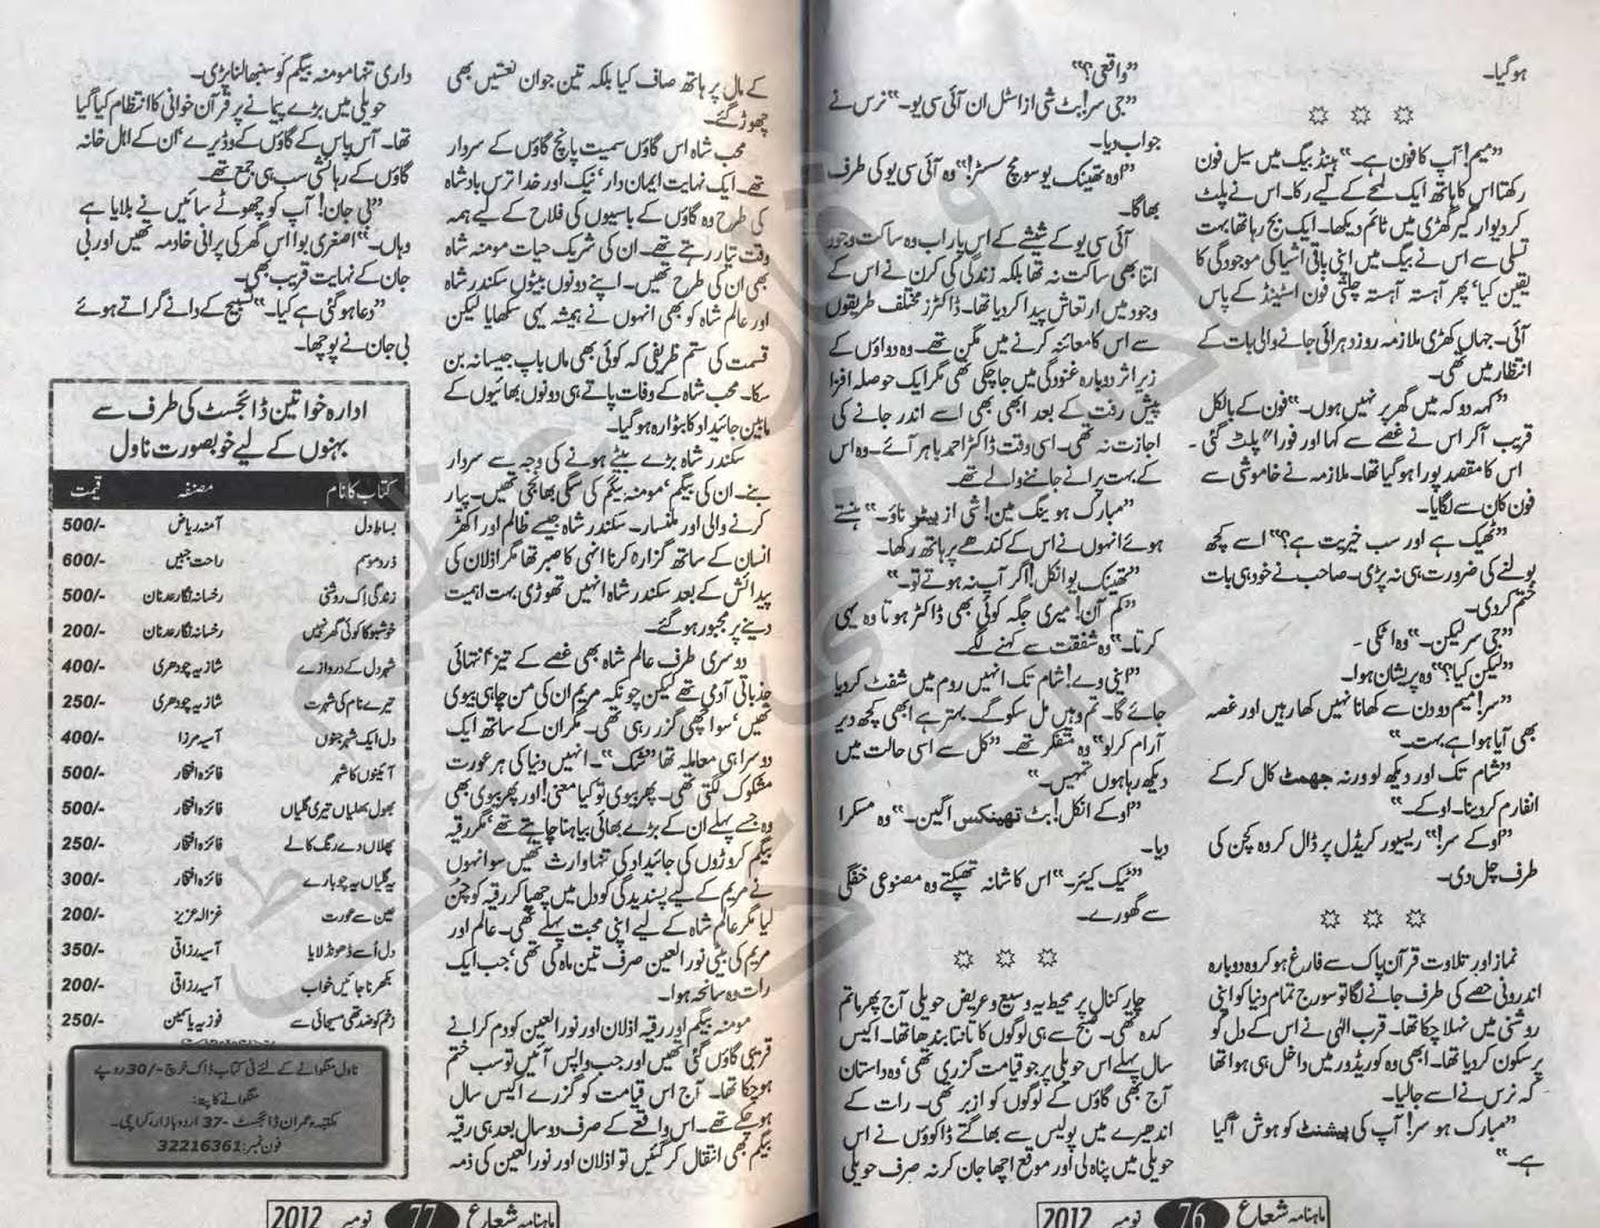 ہوگیا۔
☼ ☼ ☼
”میم! آپ کا فون ہے۔“ ہینڈ بیگ میں سیل فون
رکھتا اس کا ہاتھ ایک لمحے کے لیے رکا۔ اس نے پلٹ
کر دیوار گیر گھڑی میں ٹائم دیکھا۔ ایک بج رہا تھا بہت
تسلی سے اس نے بیگ میں اپنی باقی اشیا کی موجودگی کا
یقین کیا، پھر آہستہ آہستہ چلتی فون اسٹینڈ کے پاس
آئی۔ جہاں کھڑی ملازمہ روز دہرائی جانے والی بات کے
انتظار میں تھی۔
”کہہ دو کہ میں گھر پر نہیں ہوں۔“ فون کے بالکل
قریب آکر اس نے غصے سے کہا اور فوراً پلٹ گئی۔
اس کا مقصد پورا ہوگیا تھا۔ ملازمہ نے خاموشی سے
فون کان سے لگایا۔
”ٹھیک ہے اور سب خیریت ہے؟“ اسے کچھ
بولنے کی ضرورت ہی نہ پڑی۔ صاحب نے خود ہی بات
ختم کردی۔
”جی سر لیکن۔“ وہ اٹکی۔
”لیکن کیا؟“ وہ پریشان ہوا۔
”سر! میم دو دن سے کھانا نہیں کھا رہیں اور غصہ
بھی آیا ہوا ہے بہت۔“
”شام تک اور دیکھ لو ورنہ جھمٹ کال کرکے
انفارم کردینا۔ اوکے۔“
”اوکے سر!“ ریسیور کریڈل پر ڈال کر وہ کچن کی
طرف چل دی۔
☼ ☼ ☼
نماز اور تلاوت قرآن پاک سے فارغ ہوکر وہ دوبارہ
اندرونی حصے کی طرف جانے لگا تو سورج تمام دنیا کو اپنی
روشنی میں نہلا چکا تھا۔ قرب الٰہی نے اس کے دل کو
پرسکون کردیا تھا۔ ابھی وہ کوریڈور میں داخل ہی ہوا تھا
کہ نرس نے اسے جالیا۔
”مبارک ہو سر! آپ کی پیشنٹ کو ہوش آگیا
ہے۔“
”واقعی؟“
”جی سر! بٹ شی از اسٹل ان آئی سی یو۔“ نرس نے
جواب دیا۔
”اوہ تھینک یو سو مچ سسٹر!“ وہ آئی سی یو کی طرف
بھاگا۔
آئی سی یو کے شیشے کے اس پار اب وہ ساکت وجود
اتنا بھی ساکت نہ تھا بلکہ زندگی کی کرن نے اس کے
وجود میں ارتعاش پیدا کردیا تھا۔ ڈاکٹرز مختلف طریقوں
سے اس کا معائنہ کرنے میں مگن تھے۔ وہ دواؤں کے
زیر اثر دوبارہ غنودگی میں جاچکی تھی مگر ایک حوصلہ افزا
پیش رفت کے بعد ابھی بھی اسے اندر جانے کی
اجازت نہ تھی۔ اسی وقت ڈاکٹر احمد باہر آئے۔ وہ اس
کے بہت پرانے جاننے والے تھے۔
”مبارک ہو ینگ مین! شی از بیٹر ناؤ۔“ ہنستے
ہوئے انہوں نے اس کے کندھے پر ہاتھ رکھا۔
”تھینک یو انکل! اگر آپ نہ ہوتے تو۔“
”کم آن! میری جگہ کوئی بھی ڈاکٹر ہوتا وہ یہی
کرتا۔“ وہ شفقت سے کہنے لگے۔
”اینی وے! شام تک انہیں روم میں شفٹ کردیا
جائے گا۔ تم وہیں مل سکو گے۔ بہتر ہے ابھی کچھ دیر
آرام کرلو“ وہ متفکر تھے۔ ”کل سے اسی حالت میں
دیکھ رہا ہوں تمہیں۔“
”اوکے انکل! بٹ تھینکس اگین۔“ وہ مسکرا
دیا۔
”ٹیک کیئر۔“ اس کا شانہ تھپکتے وہ مصنوعی خفگی
سے گھورے۔
☼ ☼ ☼
چار کنال پر محیط یہ وسیع و عریض حویلی آج پھر ماتم
کدہ تھی۔ صبح سے ہی لوگوں کا تانتا بندھا تھا۔ اکیس
سال پہلے اس حویلی پر جو قیامت گزری تھی، وہ داستان
آج بھی گاؤں کے لوگوں کو ازبر تھی۔ رات کے
اندھیرے میں پولیس سے بھاگتے ڈاکوؤں نے اس
حویلی میں پناہ لی اور موقع اچھا جان کر نہ صرف حویلی
ماہنامہ شعاع 76 نومبر 2012
کے مال پر ہاتھ صاف کیا بلکہ تین جوان نعشیں بھی
چھوڑ گئے۔
محب شاہ اس گاؤں سمیت پانچ گاؤں کے سردار
تھے۔ ایک نہایت ایمان دار، نیک اور خدا ترس بادشاہ
کی طرح وہ گاؤں کے باسیوں کی فلاح کے لیے ہمہ
وقت تیار رہتے تھے۔ ان کی شریک حیات مومنہ شاہ
بھی ان کی طرح تھیں۔ اپنے دونوں بیٹوں سکندر شاہ
اور عالم شاہ کو بھی انہوں نے ہمیشہ یہی سکھایا لیکن
قسمت کی ستم ظریفی کہ کوئی بھی ماں باپ جیسا نہ بن
سکا۔ محب شاہ کے وفات پاتے ہی دونوں بھائیوں کے
مابین جائیداد کا بٹوارہ ہوگیا۔
سکندر شاہ بڑے بیٹے ہونے کی وجہ سے سردار
بنے۔ ان کی بیگم، مومنہ بیگم کی سگی بھانجی تھیں۔ پیار
کرنے والی اور ملنسار۔ سکندر شاہ جیسے ظالم اور اکھڑ
انسان کے ساتھ گزارہ کرنا انہی کا صبر تھا مگر اذلان کی
پیدائش کے بعد سکندر شاہ انہیں تھوڑی بہت اہمیت
دینے پر مجبور ہوگئے۔
دوسری طرف عالم شاہ بھی غصے کے تیز، انتہائی
جذباتی آدمی تھے لیکن چونکہ مریم ان کی من چاہی بیوی
تھیں، سو اچھی گزر رہی تھی۔ مگر ان کے ساتھ ایک
دوسرا ہی معاملہ تھا ”شک“۔ انہیں دنیا کی ہر عورت
مشکوک لگتی تھی۔ پھر بیوی تو کیا معنی! اور پھر بیوی بھی
وہ جسے پہلے ان کے بڑے بھائی بیاہنا چاہتے تھے، مگر رقیہ
بیگم کروڑوں کی جائیداد کی تنہا وارث تھیں سو انہوں
نے مریم کے لیے پسندیدگی کو دل میں چھپا کر رقیہ کو چن
لیا مگر عالم شاہ کے لیے اپنی محبت پہلے تھی۔ عالم اور
مریم کی بیٹی نورالعین صرف تین ماہ کی تھی، جب ایک
رات وہ سانحہ ہوا۔
مومنہ بیگم اور رقیہ اذلان اور نورالعین کو دم کرانے
قریبی گاؤں گئی تھیں اور جب واپس آئیں تو سب ختم
ہوچکا تھا۔ آج اس قیامت کو گزرے اکیس سال
ہوچکے تھے۔ اس واقعے کے صرف دو سال بعد ہی رقیہ
بیگم بھی انتقال کرگئیں تو اذلان اور نورالعین کی ذمہ
داری تنہا مومنہ بیگم کو سنبھالنا پڑی۔
حویلی میں بڑے پیمانے پر قرآن خوانی کا انتظام کیا گیا
تھا۔ آس پاس کے گاؤں کے وڈیرے، ان کے اہل خانہ
گاؤں کے رہائشی سب ہی جمع تھے۔
”بی جان! آپ کو چھوٹے سائیں نے بلایا ہے
وہاں۔“ اصغری بوا اس گھر کی پرانی خادمہ تھیں اور بی
جان کے نہایت قریب بھی۔
”دعا ہوگئی ہے کیا۔“ تسبیح کے دانے گراتے ہوئے
بی جان نے پوچھا۔
ادارہ خواتین ڈائجسٹ کی طرف سے
بہنوں کے لیے خوبصورت ناول
کتاب کا نام مصنفہ قیمت
بساط دل آمنہ ریاض 500/-
درد موسم راحت جبیں 600/-
زندگی اِک روشنی رخسانہ نگار عدنان 500/-
خوشبو کا کوئی گھر نہیں رخسانہ نگار عدنان 200/-
شہر دل کے دروازے شازیہ چودھری 400/-
تیرے نام کی شہرت شازیہ چودھری 250/-
دل ایک شہر جنوں آسیہ مرزا 400/-
آئینوں کا شہر فائزہ افتخار 500/-
بھول بھلیاں تیری گلیاں فائزہ افتخار 500/-
پھلاں دے رنگ کالے فائزہ افتخار 250/-
یہ گلیاں یہ چوبارے فائزہ افتخار 300/-
عین سے عورت غزالہ عزیز 200/-
دل اُسے ڈھونڈ لایا آسیہ رزاقی 350/-
بکھر نا جائیں خواب آسیہ رزاقی 200/-
زخم کو ضد تھی مسیحائی سے فوزیہ یاسمین 250/-
ناول منگوانے کے لئے فی کتاب ڈاک خرچ -/30 روپے
منگوانے کا پتہ:
مکتبہ عمران ڈائجسٹ -37 اردو بازار، کراچی۔
فون نمبر: 32216361
ماہنامہ شعاع 77 نومبر 2012